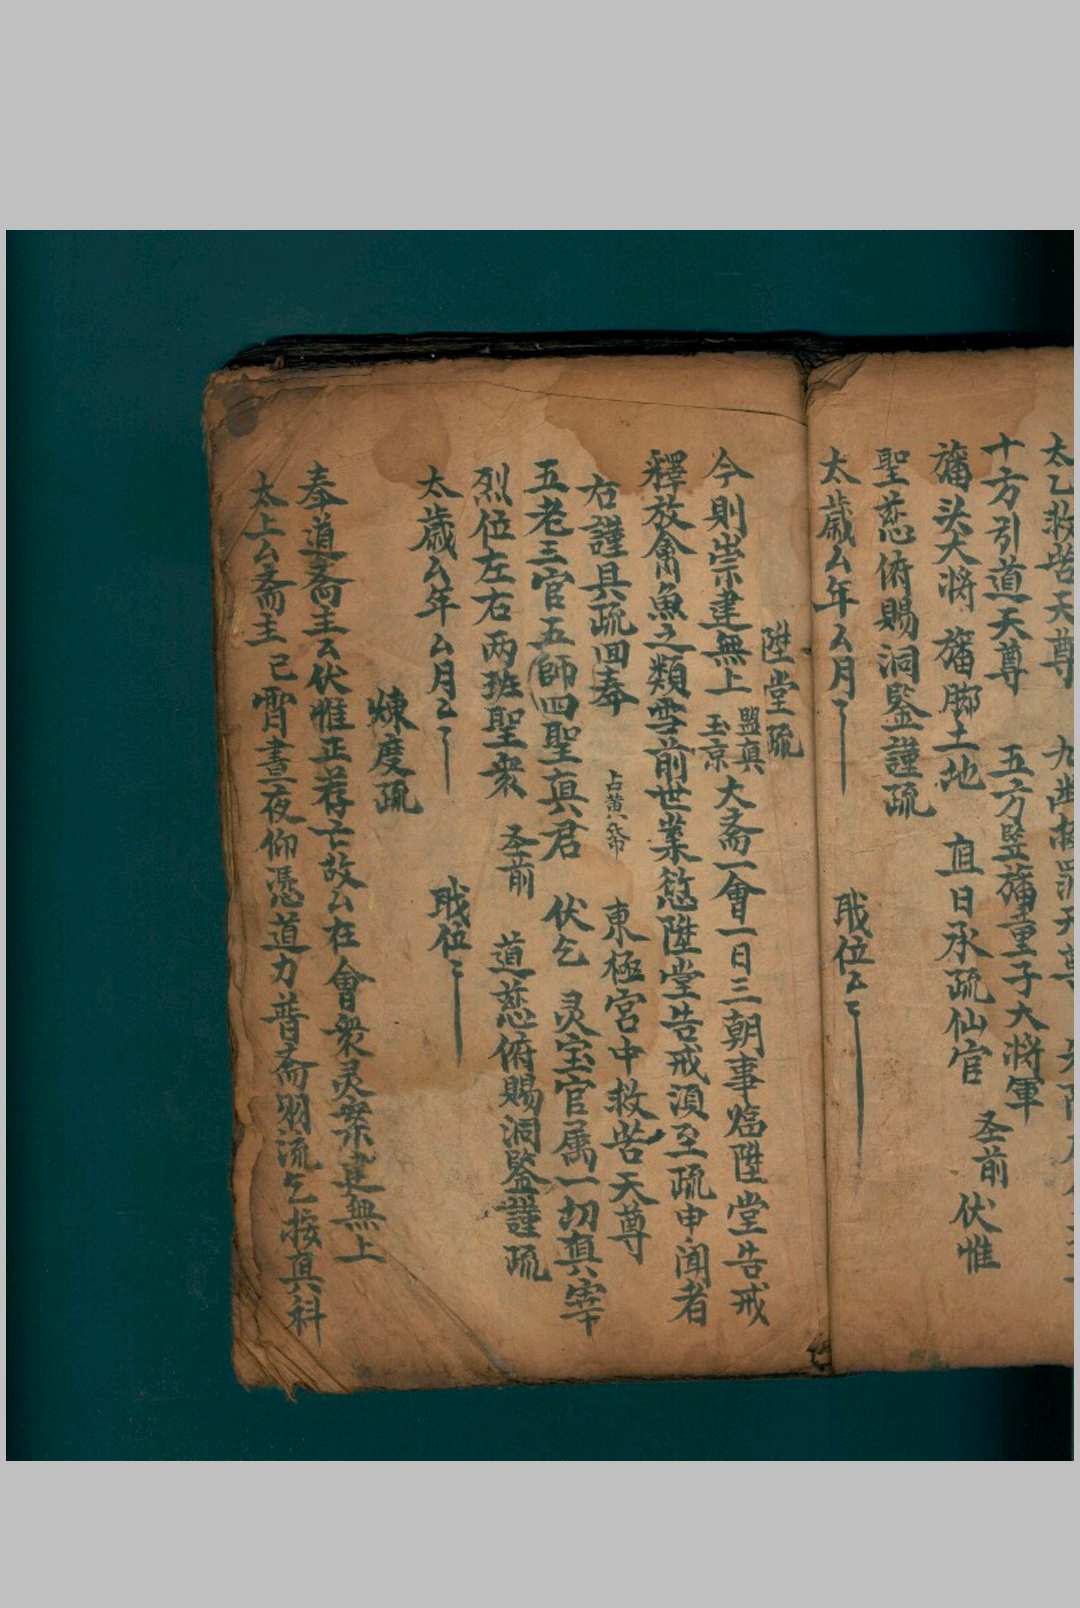 太乙救苦天尊 九
十方引道天尊 五方監旛童子大將軍
旛头大將 旛脚土地 直日承疏仙官 圣前 伏惟
聖慈俯賜洞監謹疏
太歲厶年厶月 职位
陞堂疏
今則崇建無上 盟真 玉京 大斋一會一日三朝事临陞堂告戒
釋放禽魚之類雪前世業愆陞堂告戒須至疏申闻者
右謹具疏回奉 占黄丞帋 東極宮中救苦天尊
五老三官五師四聖真君 伏乞 灵宝官属一切真宰
烈位左右两班聖衆 圣前 道慈俯賜洞監謹疏
太歲厶年厶月 职位
煉度疏
奉道斋主厶伏惟正荐亡故厶在會衆灵崇建無上
太上厶斋主 已霄晝夜仰憑道力普斋羽流乞按真科